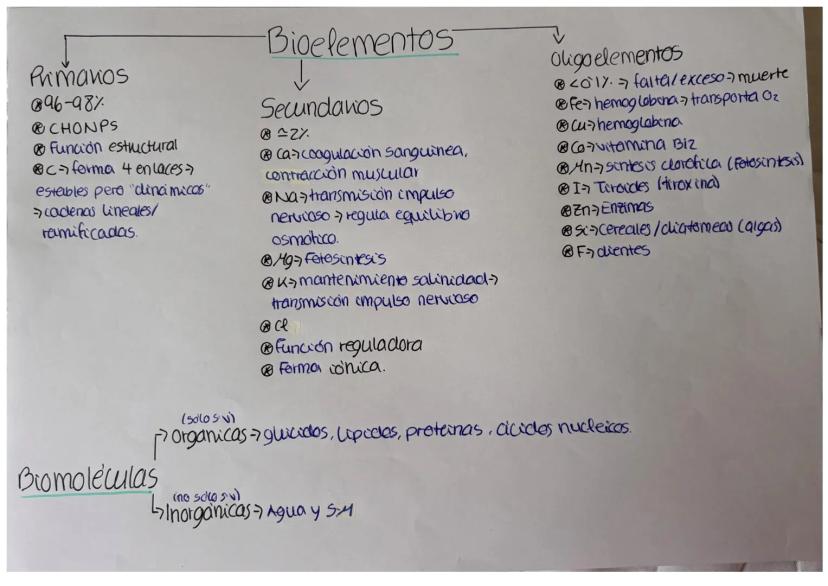 Bioelementos
Primarios
96-98%
CHONPS
Función estructural
C→forma 4 enlaces→
estables pero "dinámicos"
→cadenas lineales/
ramificadas.
Secundarios
≃2%
Ca→coagulación sanguínea,
contracción muscular
Na→transmisión impulso
nervioso→regula equilibrio
osmótico.
Mg→fotosíntesis
K→mantenimiento salinidad→
transmisión impulso nervioso
Cl
Función reguladora
Forma iónica.
Oligoelementos
<0'1%→falta/exceso→muerte
Fe→hemoglobina→transporta O₂
Cu→hemoglobina
Co→vitamina B12
Mn→síntesis clorofílica (fotosíntesis)
I→Tiroides (tiroxina)
Zn→Enzimas
Si→cereales/diatomeas (algas)
F→dientes
Biomoléculas
(solo s.v)
→Orgánicas→glúcidos, lípidos, proteínas, ácidos nucleicos.
(no solo s.v)
→Inorgánicas→Agua y S.M